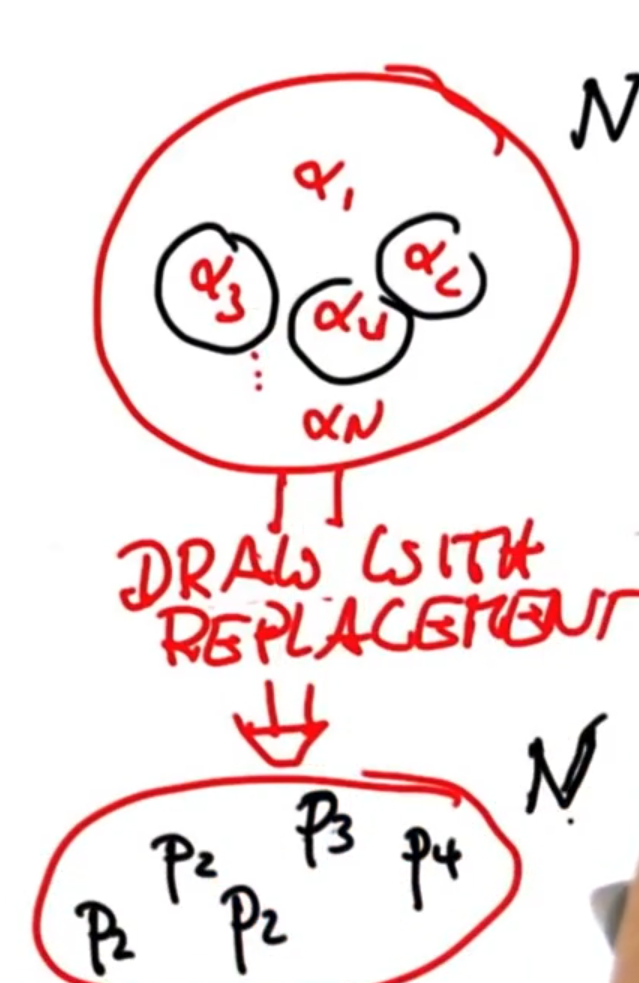 N
α₁
α₃ α₄ α₂
⋮
αN
DRAW WITH
REPLACEMENT
N
p₂ p₃ p₄
p₂ p₂